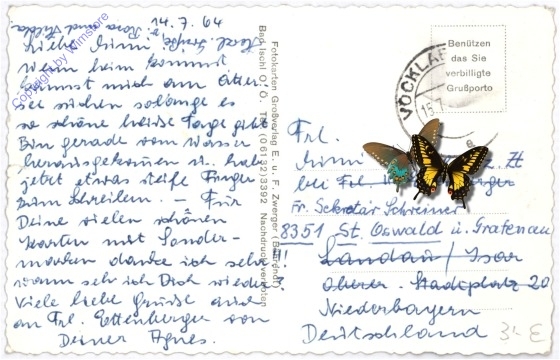 14.7.64
Herzl. Grüße v. Rosa und Hilda
Liebe Mimi! 
wenn heim kommst,
kannst mich am Atter-
see suchen solange es
so schöne heiße Tage gibt
Bin gerade vom Wasser
herausgekommen u. habe
jetzt etwas steife Finger
zum Schreiben. – Für
Deine vielen schönen
Karten mit Sonder-
marken danke ich sehr!!!
wann seh ich Dich wieder
Viele liebe Grüsse auch
an Frl. Ettenberger von
Deiner Agnes.
Copyright by Wimstore
Fotokarten Großverlag E. u. F. Zwerger (Behrendt)
Bad Ischl O. Ö. Tel. (06132) 3392 Nachdruck verboten
VÖCKLA
15.7.
Benützen
das Sie
verbilligte
Grußporto
Frl.
Mimi z. Zt
bei Frl.
Fr. Sekretär Schreiner
8351 St. Oswald ü. Grafenau
Landau / Isar
Oberer Stadtplatz 20
Niederbayern
Deutschland
3'- E